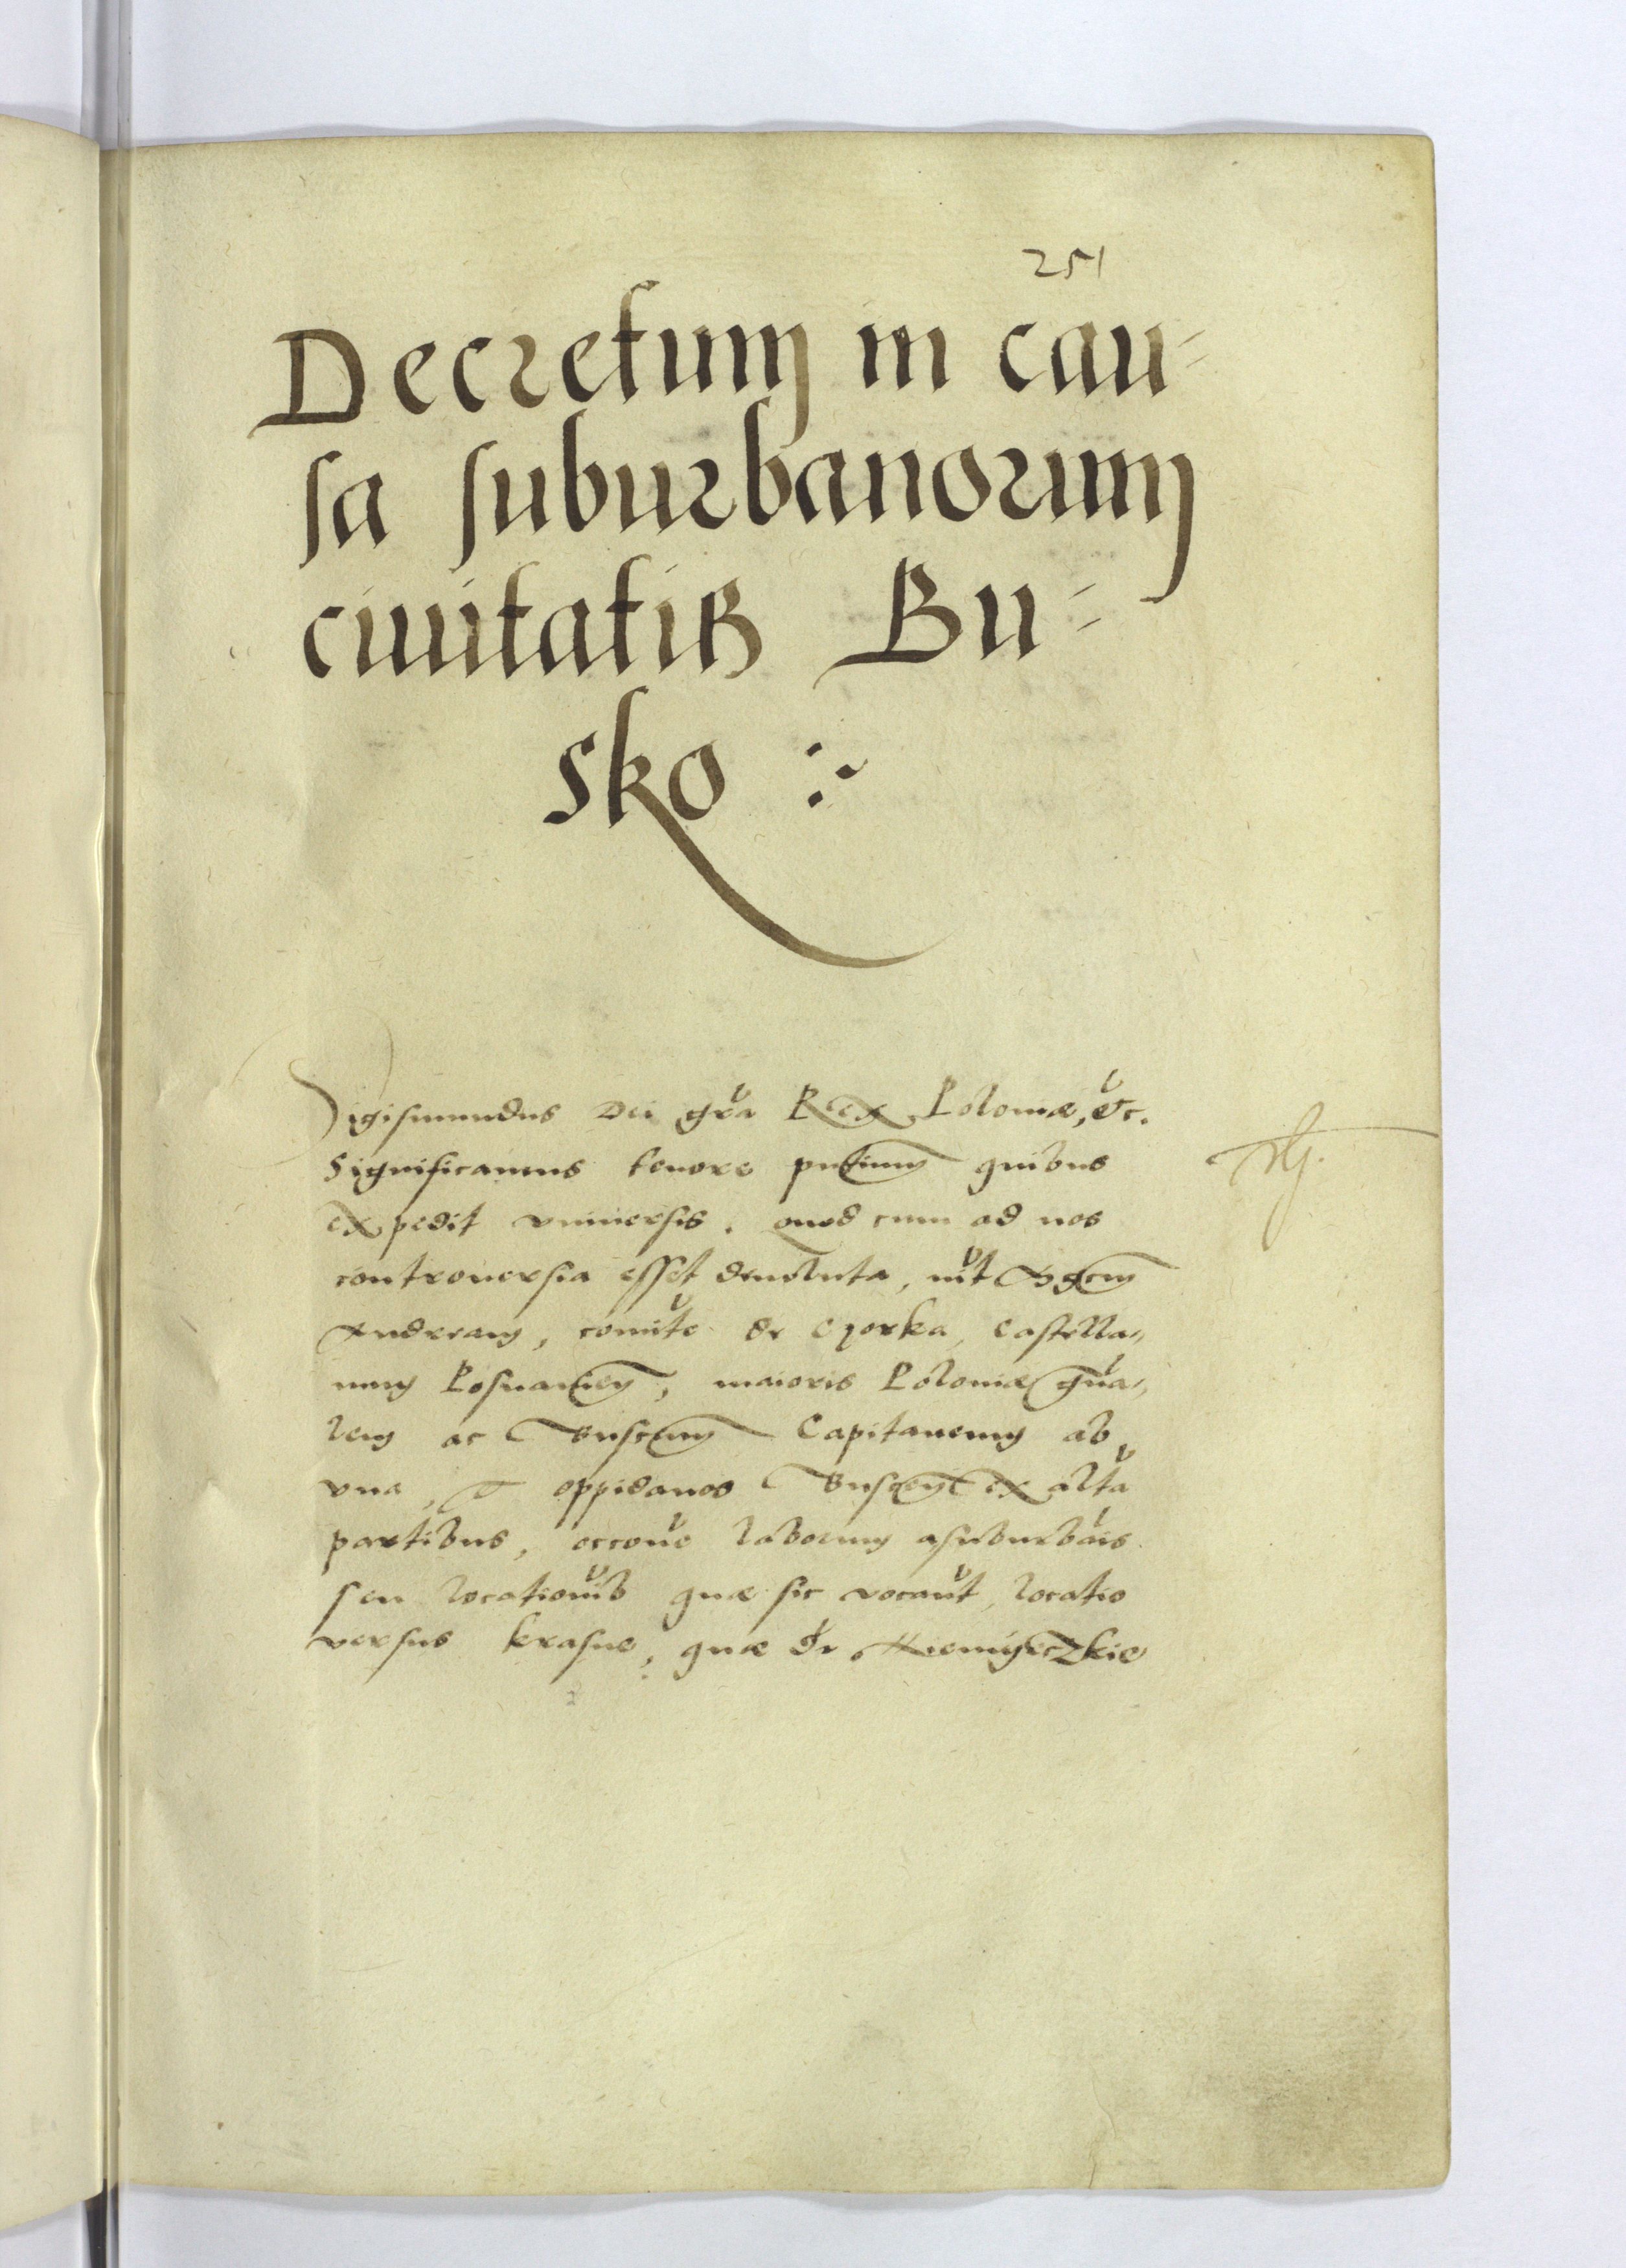 251
Decretum in cau=
sa suburbanorum
ciuitatis Bu=
sko
Sigismundus Dei gra Rex Poloniæ, etc.
Significamus tenore pntium quibus
expedit vniuersis. quod cum ad nos
controuersia esset deuoluta, int Mgcum
Andream, comite de Gorka, Castella,,
num Posnanien, maioris Poloniæ gna,,
lem ac Buscen Capitaneum ab
vna, et oppidanos Buscen ex alta
partibus, occone laborum a suburbais
seu locationib quæ sic vocant, locatio
versus krasne, quæ de Niemyeczkie